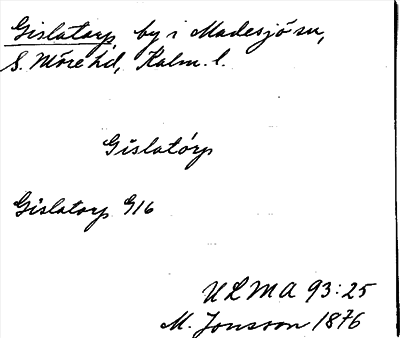 Gislatorp by i Madesjö sn,
S. Möre hd, Kalm. l.
Gislatórp
Gislatorp G16
ULMA 93:25
M. Jonsson 1876